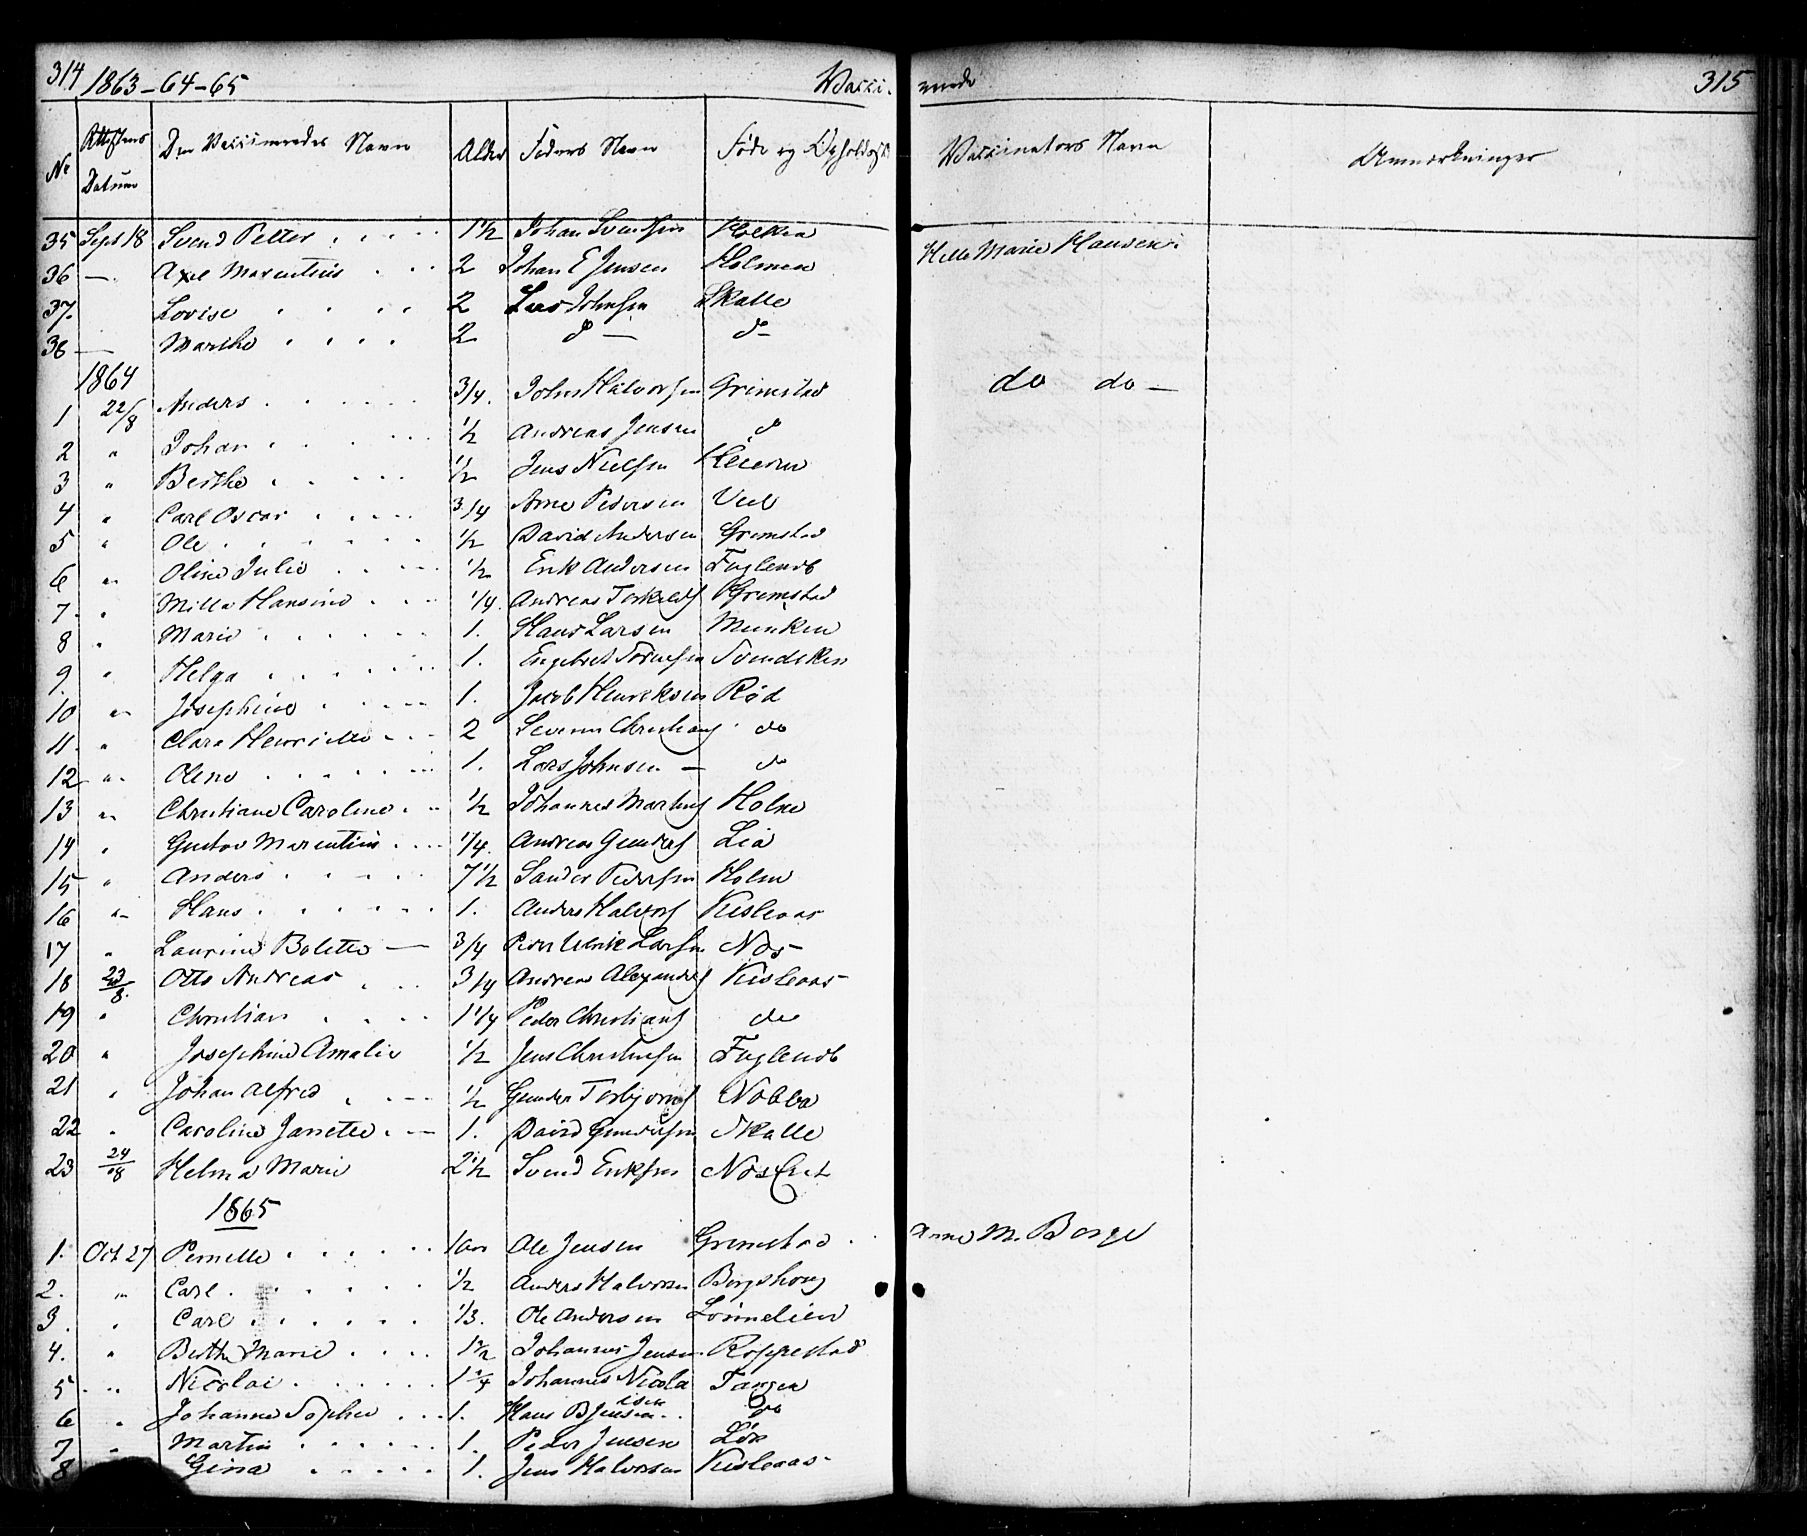 314 1863-64-65 Vacci- nerede 315
No Attestens Datum Den Vaccineredes Navn Alder Faders Navn Føde og Opholdsst Vaccinators Navn Anmærkninger
35 Sept 18 Svend Petter 1½ Johan Svendsen Hille Marie Hansen
36 — Axel Marentius 2 Johan E Jensen Holmen
37. Lovise 2 Lars Johnsen Skalle
38 — Marthe 2 d — d -
1864
1 22/8 Anders 3/4. John Halvorsen Grimstad do do —
2 " Johan ½ Andreas Jensen d
3 " Berthe ½ Jens Nielsen
4 " Carl Oscar 3/4 Arne Pedersen
5 " Ole ½ David Andersen Gremstad
6 " Oline Julie ½ Erik Andersen Fuglevib
7. " Milla Hansine 1/4. Andreas Torkelds Gremstad
8 " Marie 1. Hans Larsen Munken
9 " Helga 1. Engebret Svendsken
10 " Josephine 1. Jacob Henreksen Rød
11. " Clara Henriette 2 Severin Christians do
12 " Oleno 1. Lars Johnsen — do
13 " Christiane Caroline ½ Johannes Martins Holme
14 " Gustav Marentius 1/4. Andreas Gunders Lia
15 " Anders 7½ Sander Pedersen Holm
16 " Hans 1. Anders Halvors Kisleaas
17 " Laurine Bolette — 3/4 Peder Ulrik Larsen Nøs-
18 23/8. Otto Andreas 3/4 Andreas Alexanders Kisleaas
19 " Christian 1 1/4 Peder Christians do
20 " Josephine Amalie ½ Jens Christensen Fuglevib
21 " Johan Alfred ½ Gunder Torbjørns
22 " Caroline Janette 1. David Gundersen Skalle
23 24/8 Helma Marie 2½ Svend Eriksen
1865
1. Oct 27 Pernelle 1 aar Ole Jensen Gremstad Anne M. Borge
2. " Carl ½ Anders Halvorsen Borgshoug
3. " Carl 1/3. Ole Andersen
4. " Berthe Marie 1½ Johannes Jensen Roppestad
5 " Nicolai Johannes Nicola Tangen
6 " Johanne Sophie 1. Hans B Jensen do
7 " Martin 1. Peder Jensen Løk
8 Gina 1. Jens Halvorsen Kisleaas